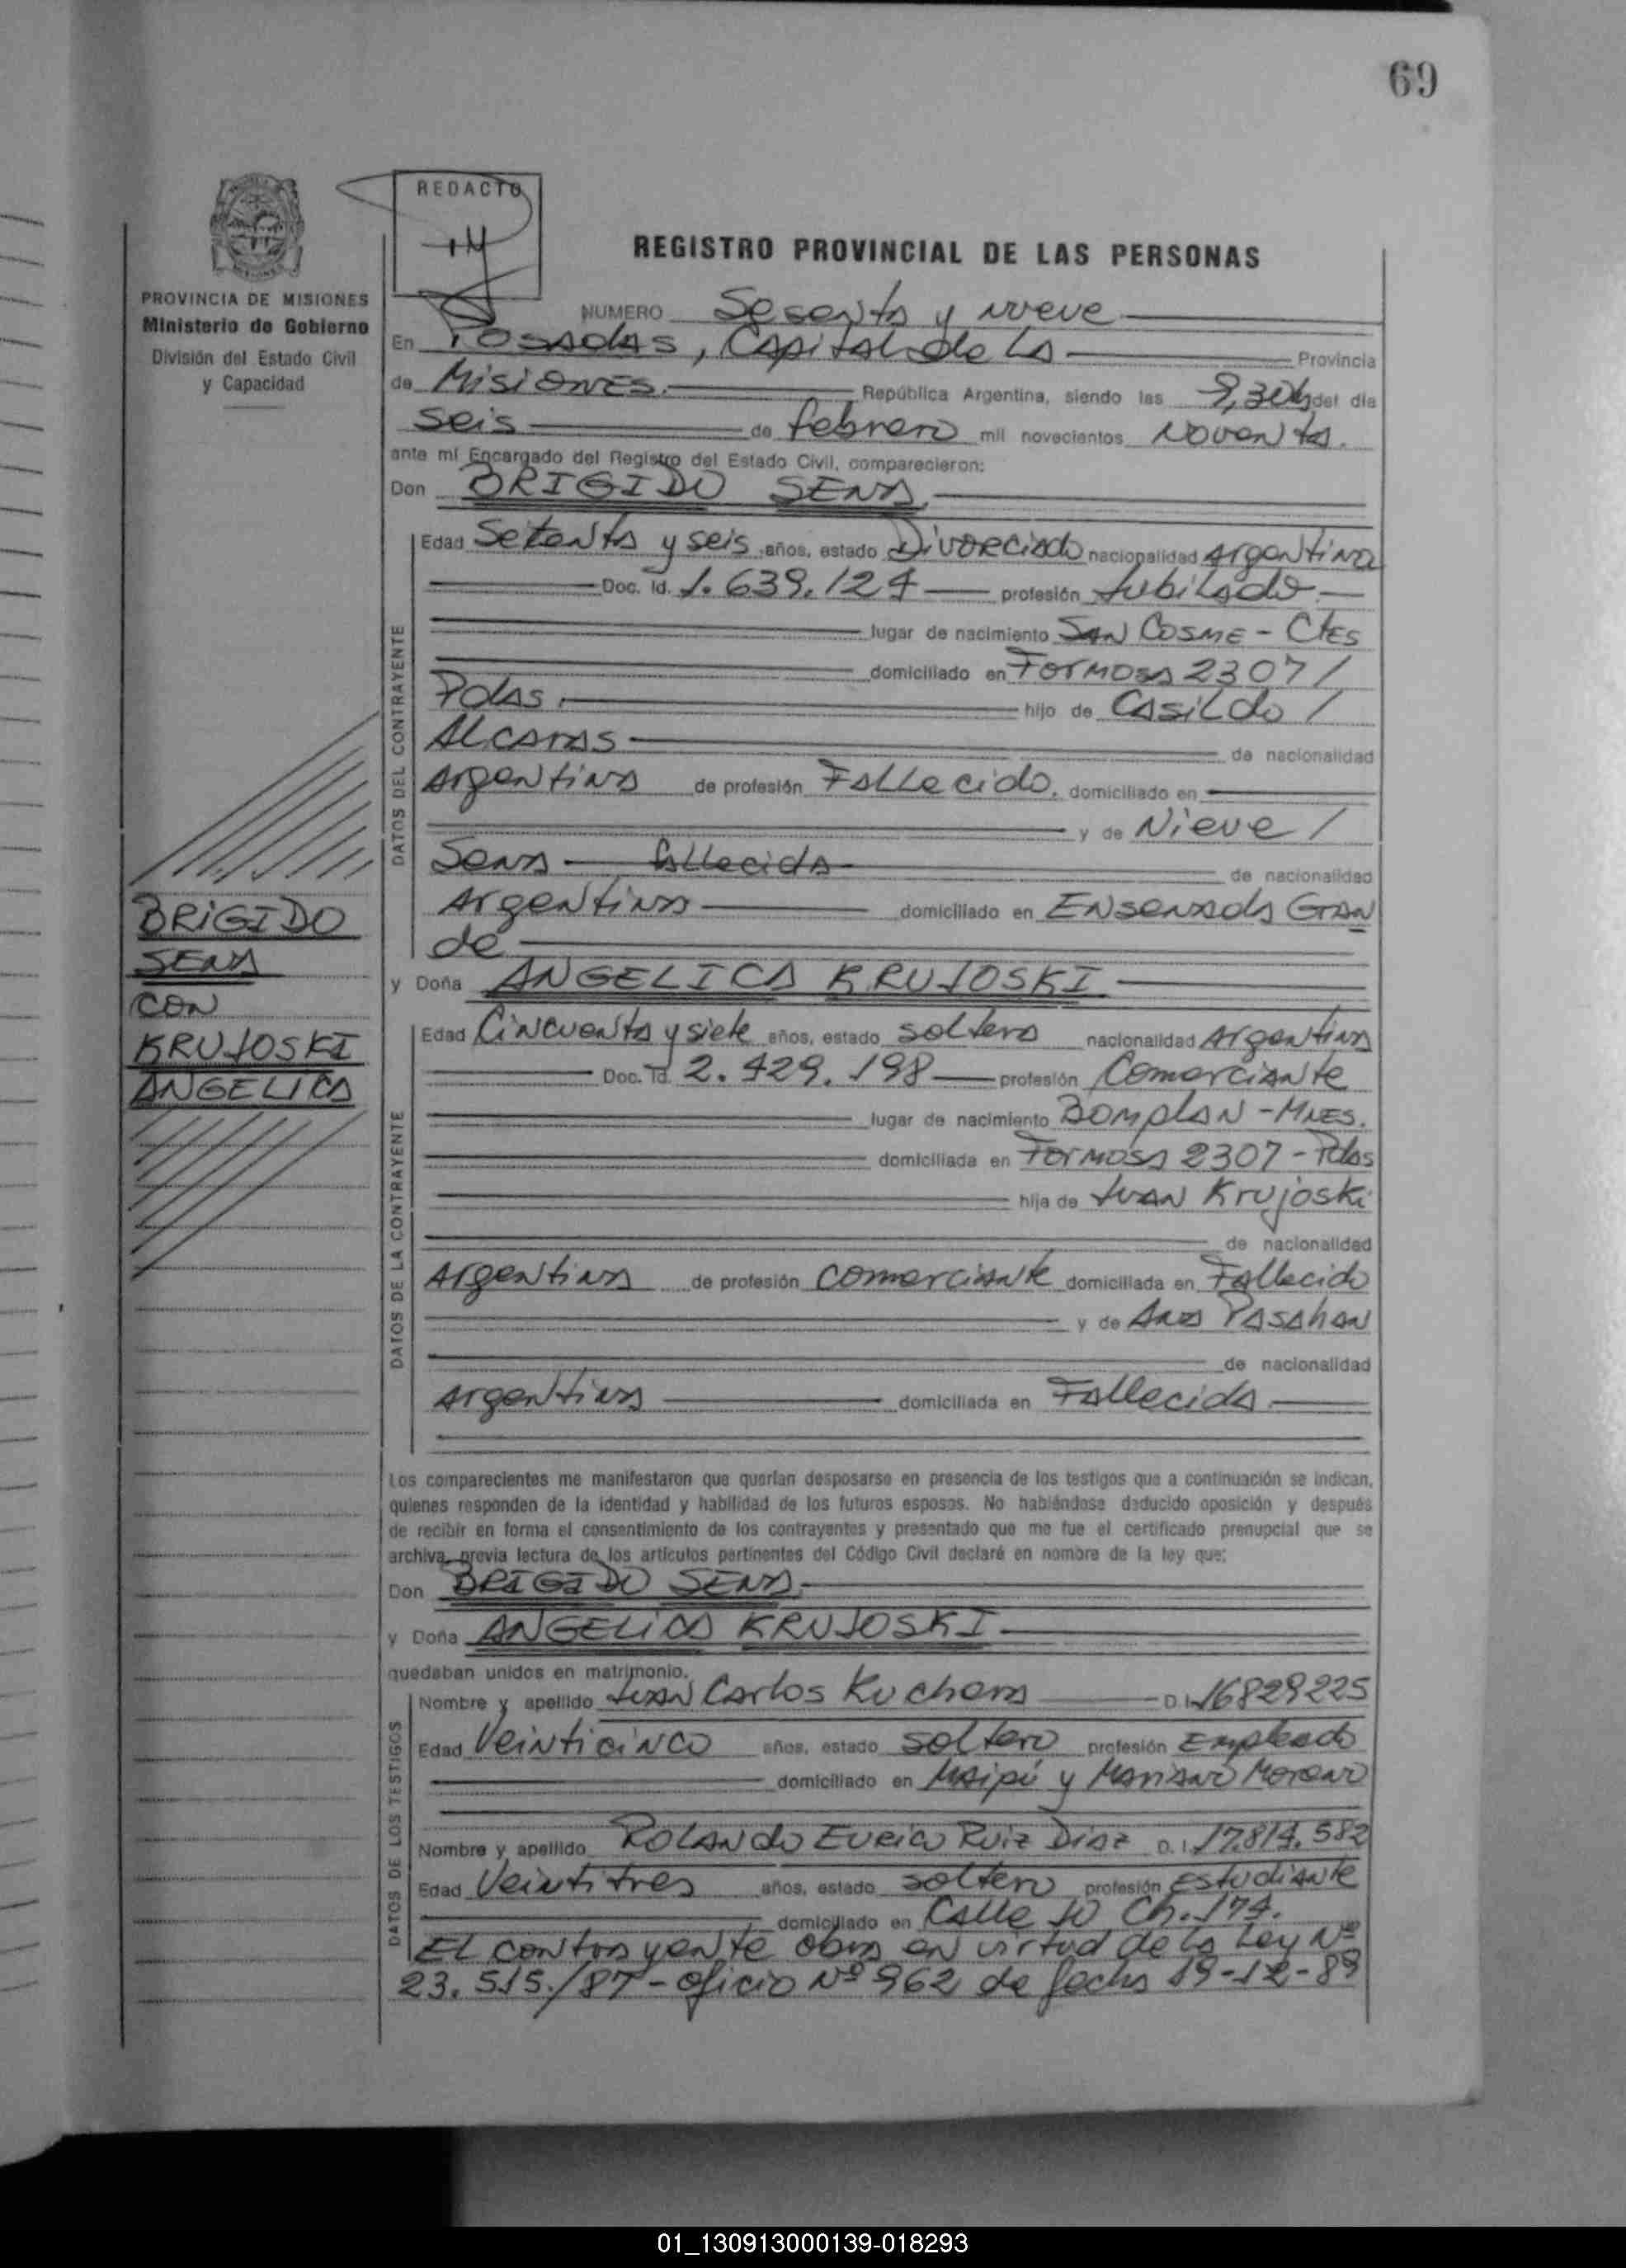 69
REDACTO
REGISTRO PROVINCIAL DE LAS PERSONAS
PROVINCIA DE MISIONES
Ministerio de Gobierno
División del Estado Civil
y Capacidad
NUMERO Sesenta y nueve
En Posadas, Capital de la Provincia
de Misiones. República Argentina, siendo las 9,30 hs del día
seis de febrero mil novecientos noventa.
ante mí Encargado del Registro del Estado Civil, comparecieron:
Don BRIGIDO SENA
DATOS DEL CONTRAYENTE
Edad Setenta y seis años, estado Divorciado nacionalidad Argentina
Doc. Id. 1.639.124 profesión Jubilado
lugar de nacimiento San Cosme - Ctes
domiciliado en Formosa 2307/
Pdas. hijo de Casildo /
Alcaras de nacionalidad
Argentina de profesión Fallecido. domiciliado en
y de Nieve /
Sena fallecida de nacionalidad
Argentina domiciliado en Ensenada Gran
de
BRIGIDO
SENA
CON
KRUJOSKI
ANGELICA
y Doña ANGELICA KRUJOSKI
DATOS DE LA CONTRAYENTE
Edad Cincuenta y siete años, estado soltera nacionalidad Argentina
Doc. Id. 2.429.198 profesión Comerciante
lugar de nacimiento Bomplan - Mnes.
domiciliada en Formosa 2307 - Pdas
hija de Juan Krujoski
de nacionalidad
Argentina de profesión comerciante domiciliada en Fallecido
y de Ana Pasahan
de nacionalidad
Argentina domiciliada en Fallecida
Los comparecientes me manifestaron que querían desposarse en presencia de los testigos que a continuación se indican,
quienes responden de la identidad y habilidad de los futuros esposos. No habiéndose deducido oposición y después
de recibir en forma el consentimiento de los contrayentes y presentado que me fue el certificado prenupcial que se
archiva, previa lectura de los artículos pertinentes del Código Civil declaré en nombre de la ley que:
Don BRIGIDO SENA
y Doña ANGELICA KRUJOSKI
quedaban unidos en matrimonio.
DATOS DE LOS TESTIGOS
Nombre y apellido Juan Carlos Kuchara D. I. 16829225
Edad Veinticinco años, estado soltero profesión Empleado
domiciliado en Maipú y Mariano Moreno
Nombre y apellido Rolando Eurico Ruiz Diaz D. I. 17.814.582
Edad Veintitres años, estado soltero profesión Estudiante
domiciliado en Calle 10 Ch. 174.
El contrayente obra en virtud de la Ley Nº
23.515/87 - oficio Nº 962 de fecha 19-12-89
01_130913000139-018293